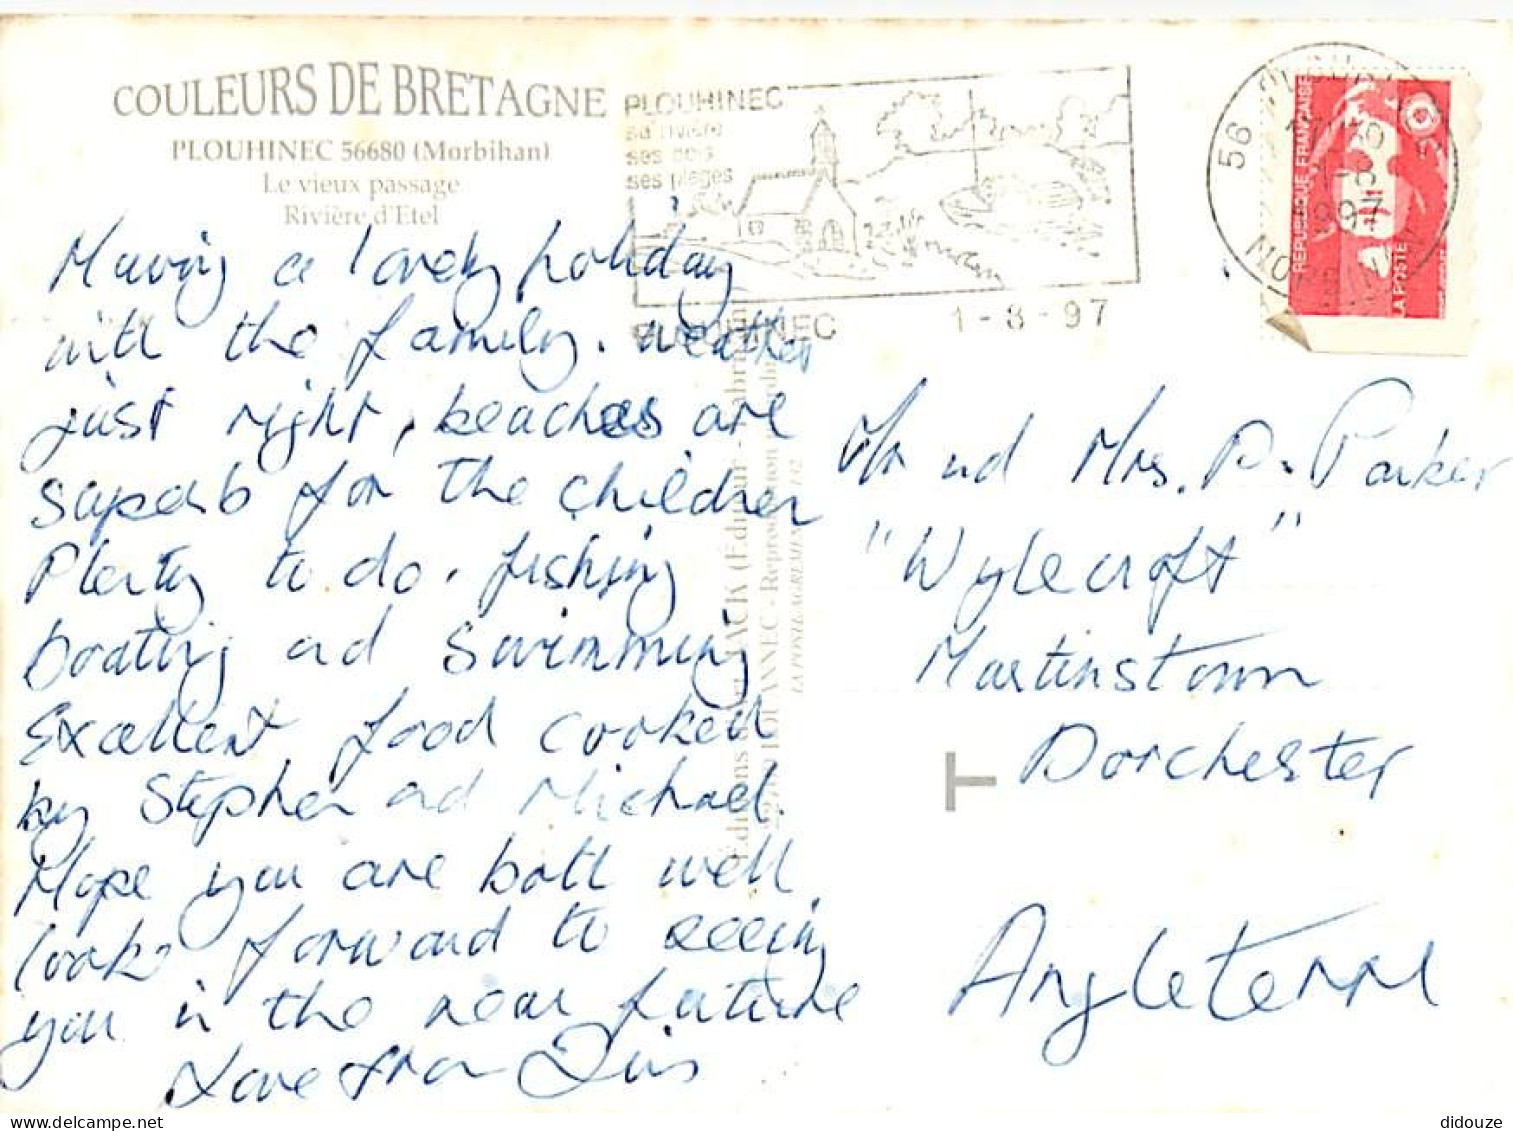 COULEURS DE BRETAGNE
PLOUHINEC 56680 (Morbihan)
Le vieux passage
Rivière d'Etel
PLOUHINEC
sa rivière
ses
ses plages
PLOUHINEC
1-8-97
56
1997
REPUBLIQUE FRANÇAISE
LA POSTE
Having a lovely holiday
with the family. weather
just right, beaches are
superb for the children
Plenty to do. fishing
boating and swimming
Excellent food cooked
by Stephen and Michael.
Hope you are both well
look forward to seeing
you in the near future
Love from
Mr and Mrs. P. Parker
"Wylecroft"
Martinstown
Dorchester
T
Angleterre
LA POSTE AGREMENT
didouze